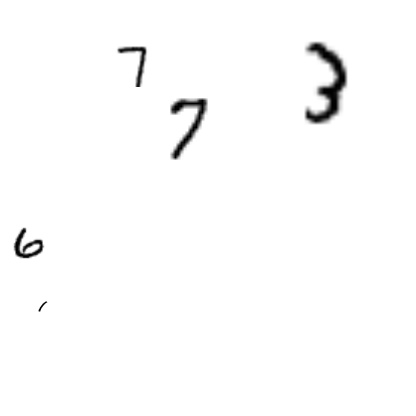 7
7 3
6